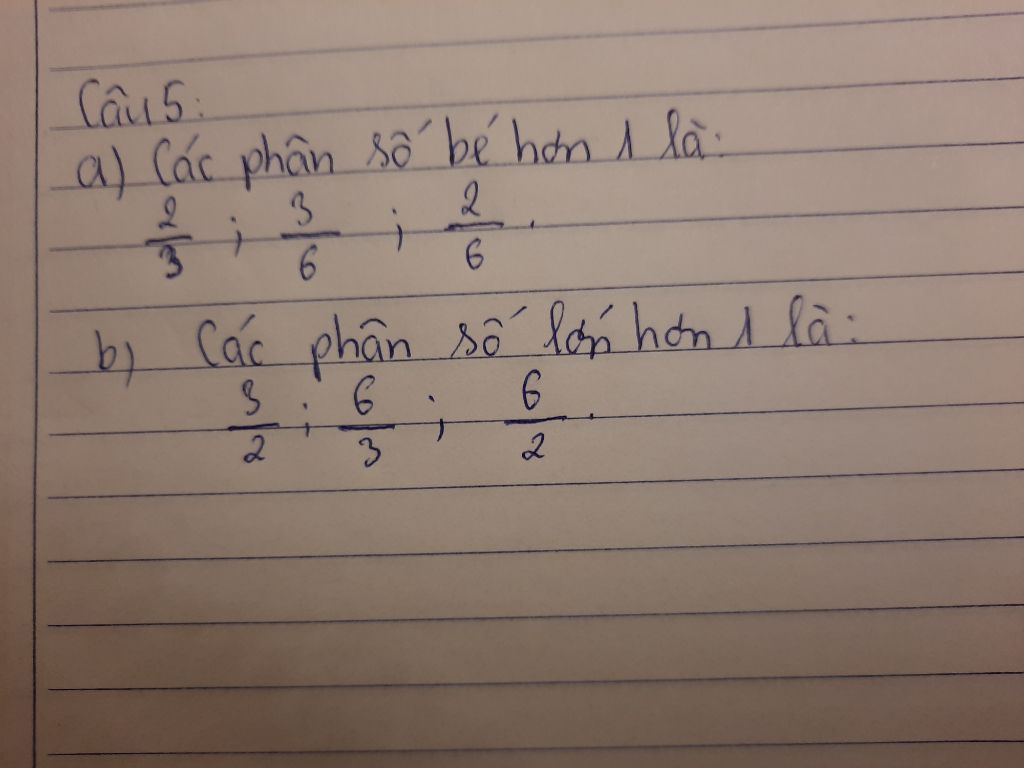 Câu 5:
a) Các phân số bé hơn 1 là:
2/3 ; 3/6 ; 2/6 .
b) Các phân số lớn hơn 1 là:
3/2 ; 6/3 ; 6/2 .